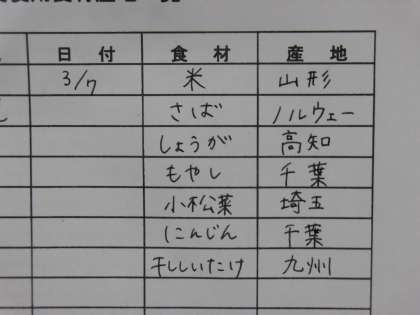 日付 食材 産地
3/7 米 山形
さば ノルウェー
しょうが 高知
もやし 千葉
小松菜 埼玉
にんじん 千葉
干ししいたけ 九州